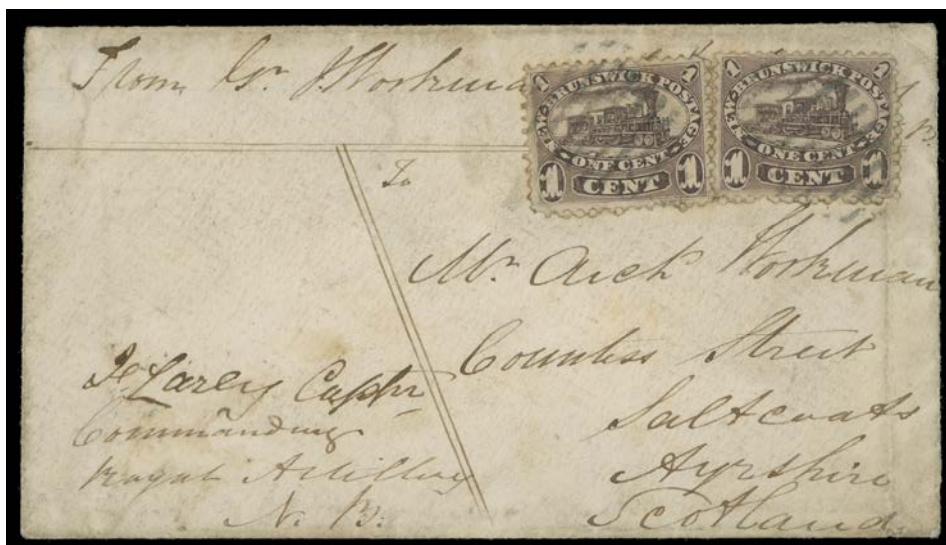 From Gr. J Workman
1 NEW·BRUNSWICK POSTAGE 1
ONE CENT
1 CENT 1
1 NEW·BRUNSWICK POSTAGE 1
ONE CENT
1 CENT 1
To
Mr. Arch Workman
Countess Street
Saltcoats
Ayrshire
Scotland
Captn
Commanding
Royal Artillery
N. B.